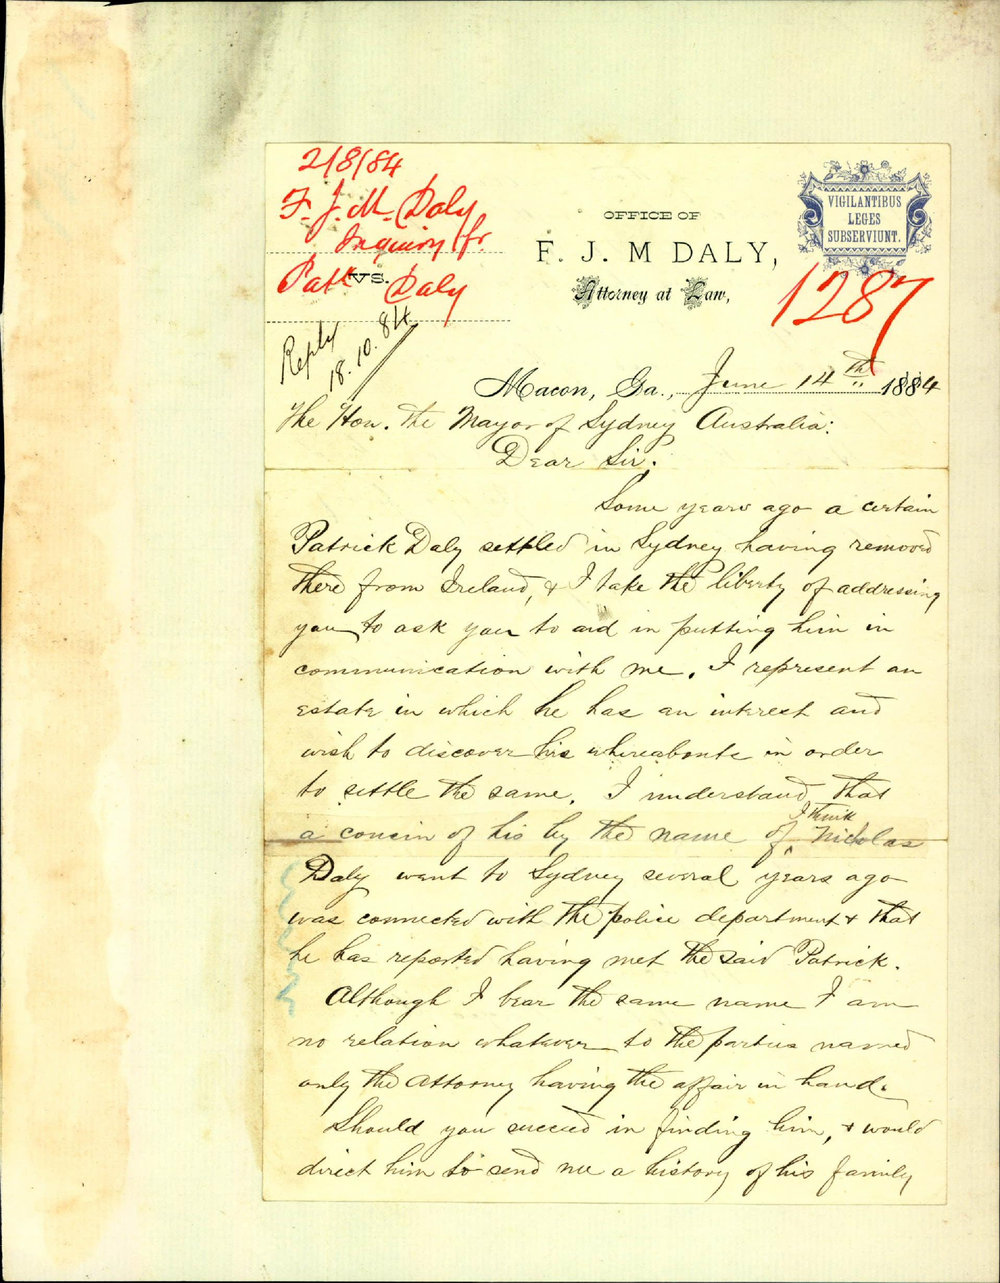 2/8/84
F. J. M. Daly
Inquiry fr
Patk VS. Daly
Reply
18.10.84
OFFICE OF
F. J. M DALY,
Attorney at Law,
VIGILANTIBUS
LEGES
SUBSERVIUNT.
1287
Macon, Ga., June 14th 1884
The Hon. The Mayor of Sydney Australia:
Dear Sir;
Some years ago a certain
Patrick Daly settled in Sydney having removed
there from Ireland, & I take the liberty of addressing
you to ask you to aid in putting him in
communication with me. I represent an
estate in which he has an interest and
wish to discover his whereabouts in order
to settle the same. I understand that
a cousin of his by the name of I think Nicholas
Daly went to Sydney several years ago
was connected with the police department & that
he has reported having met the said Patrick.
Although I bear the same name I am
no relation whatever to the parties named
only the attorney having the affair in hand.
Should you succeed in finding him, & would
direct him to send me a history of his family